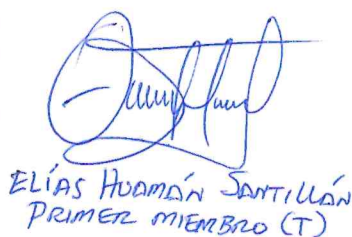 ELÍAS HUAMÁN SANTILLÁN
PRIMER MIEMBRO (T)